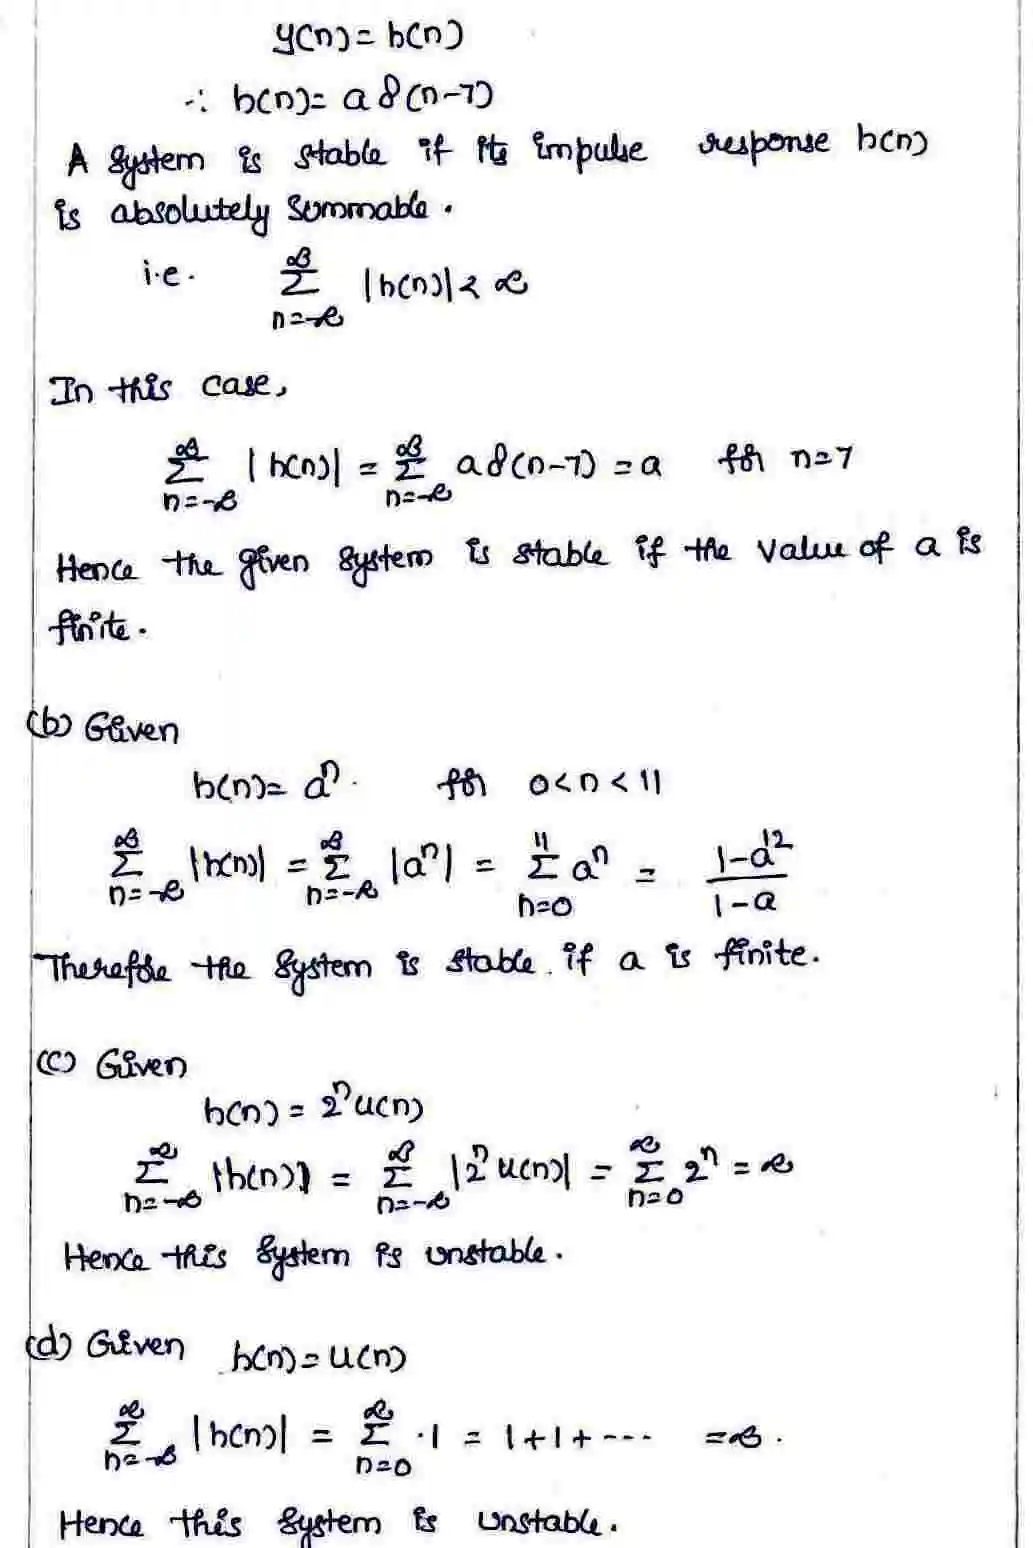 y(n) = h(n)
∴ h(n) = a δ(n-7)
A system is stable if its impulse response h(n)
is absolutely summable.
i.e. ∞Σn=-∞ |h(n)| < ∞
In this case,
∞Σn=-∞ |h(n)| = ∞Σn=-∞ a δ(n-7) = a for n=7
Hence the given system is stable if the value of a is
finite.
(b) Given
h(n) = aⁿ. for 0<n<11
∞Σn=-∞ |h(n)| = ∞Σn=-∞ |aⁿ| = 11Σn=0 aⁿ = 1-a¹² / 1-a
Therefore the system is stable. if a is finite.
(c) Given
h(n) = 2ⁿu(n)
∞Σn=-∞ |h(n)| = ∞Σn=-∞ |2ⁿ u(n)| = ∞Σn=0 2ⁿ = ∞
Hence this system is unstable.
(d) Given h(n) = u(n)
∞Σn=-∞ |h(n)| = ∞Σn=0 .1 = 1+1+--- =∞.
Hence this system is unstable.